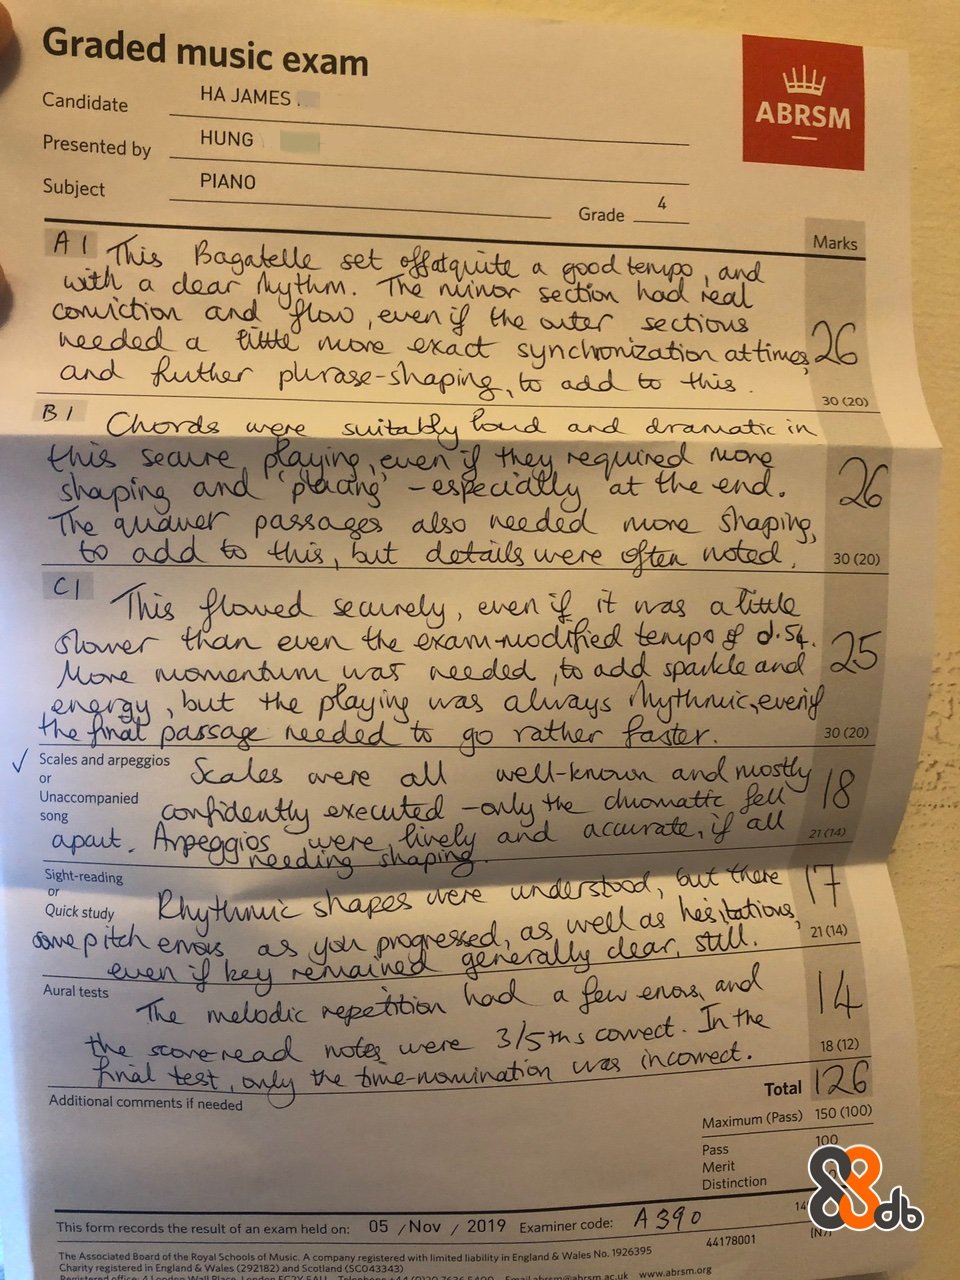 Graded music exam
ABRSM
Candidate HA JAMES
Presented by HUNG
Subject PIANO
Grade 4
Marks
A1 This Bagatelle set off at quite a good tempo, and
with a clear rhythm. The minor section had real
conviction and flow, even if the outer sections
needed a little more exact synchronization at times, 26
and further phrase-shaping, to add to this.
30 (20)
B1 Chords were suitably loud and dramatic in
this secure playing, even if they required more
shaping and 'placing' - especially at the end. 26
The quaver passages also needed more shaping,
to add to this, but details were often noted.
30 (20)
C1 This flowed securely, even if it was a little
slower than even the exam-modified tempo of d.54.
More momentum was needed, to add sparkle and 25
energy, but the playing was always rhythmic, even if
the final passage needed to go rather faster.
30 (20)
✓ Scales and arpeggios
or
Unaccompanied
song
Scales were all well-known and mostly
confidently executed - only the chromatic fell 18
apart. Arpeggios were lively and accurate, if all
needing shaping.
21 (14)
Sight-reading
or
Quick study
Rhythmic shapes were understood, but there 17
some pitch errors as you progressed, as well as hesitations,
even if key remained generally clear, still.
21 (14)
Aural tests
The melodic repetition had a few errors, and 14
the score-read notes were 3/5ths correct. In the
final test, only the time-nomination was incorrect.
18 (12)
Total 126
Additional comments if needed
Maximum (Pass) 150 (100)
Pass 100
Merit
Distinction
This form records the result of an exam held on: 05 / Nov / 2019 Examiner code: A390
44178001
The Associated Board of the Royal Schools of Music. A company registered with limited liability in England & Wales No. 1926395
Charity registered in England & Wales (292182) and Scotland (SC043343)
www.abrsm.org
88db